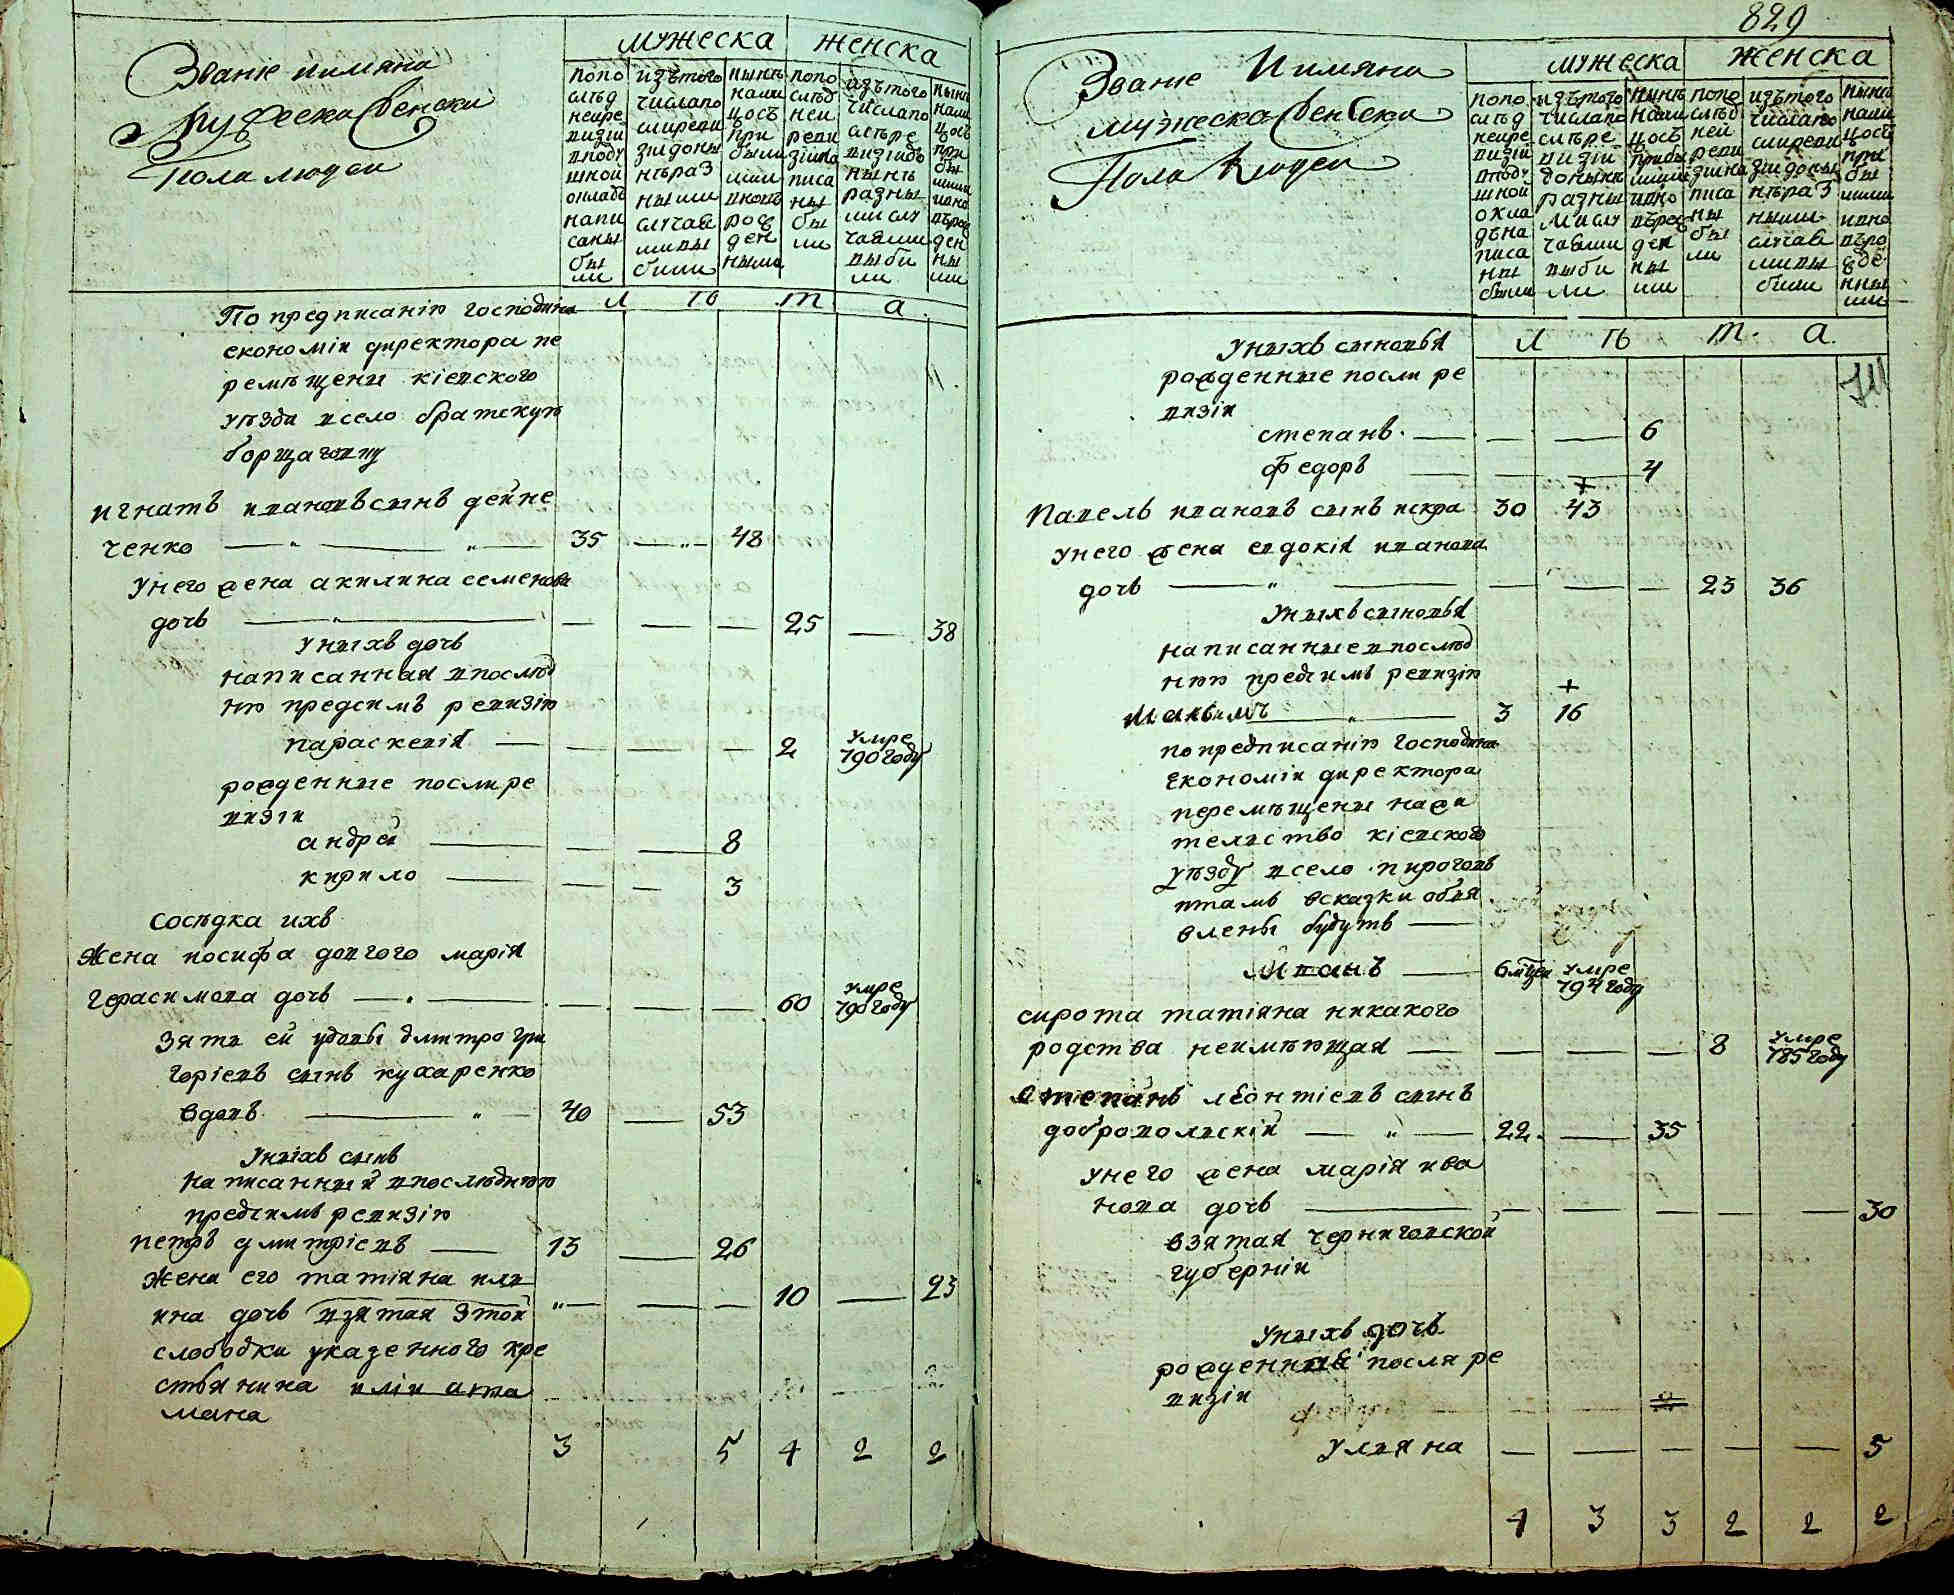 Званіе иимяна
Мужеска Женски
Пола людеи
мужеска женска
попо слѣд неире визіи вподу шной окладъ напи саны бы ли
изътого числапо слиреви зіидоны нѣраз ными случае мивы били
нынѣ нали цосъ при были ими вновъ рож ден ными
попо слѣд неи реви зіина писа ны бы ли
изътого числапо слѣре визіидъ нынѣ разны мислу чаями выби ли
нынѣ нали цосъ при бы ими ивно върож ден ны ми
л ѣ т а
По предписанію господина
економіи директора пе
ремѣщены кіевского
уѣзда всело братскую
борщаговку
игнатъ ивановъ сынъ дейне
ченко 35 48
Унего жена акилина семенова
дочь 25 38
Уныхъ дочь
написанная впослѣд
ню предсимъ ревизію
параскевія 2 умре 790 году
рожденные послире
визіи
андрей 8
кирило 3
Сосѣдка ихъ
Жена иосифа довгого марія
Герасимова дочь 60 умре 790 году
Зять ей удовы дмитро гри
горіевъ сынъ кухаренко
вдовъ 40 53
Уныхъ сынъ
написанный впослѣднюю
предсимъ ревизію
петръ дмитріевъ 13 26
Жена его татіяна иль
ина дочь взятая этой
слободки указенного кре
стьянина иліи ата
мана 10 23
3 5 4 2 2
829
Званіе Иимяна
мужеска Женбеки
Пола Людеи
мужеска женска
попо слѣд неире визіи вподу шной окла дъна писа ны были
изътого числапо слѣре визіи доныни разны мислу чаями выби ли
нынѣ нали цосъ прибы ими ивно вѣрож ден ны ми
попо слѣд ней реви зіина писа ны бы ли
изътого числапо слиреви зіидоны нѣраз ными случае мивы били
нынѣ нали цосъ при бы ими ивно въро жде нны ми
л ѣ т а
Уныхъ сыновья
рожденные посли ре
визіи
степанъ 6
федоръ 4
Павелъ ивановъ сынъ искра 30 43
Унего жена евдокія иванова
дочь 23 36
Уныхъ сыновья
написанные впослѣд
нюю предсимъ ревизію
Максимъ 3 16
попредписанію господина
економіи директора
перемѣщены нажи
телство кіевского
уѣзду всело пироговъ
итамъ всказки объя
влены будутъ
Иванъ 6 мцей умре 794 году
сирота татіяна никакого
родства неимѣющая 8 умре 785 году
Степанъ леонтіевъ сынъ
доброволский 22 35
унего жена марія ива
нова дочь 30
взятая черниговской
губерніи
Уныхъ дочь
рожденная посля ре
визіи
улияна 5
4 3 3 2 2 2